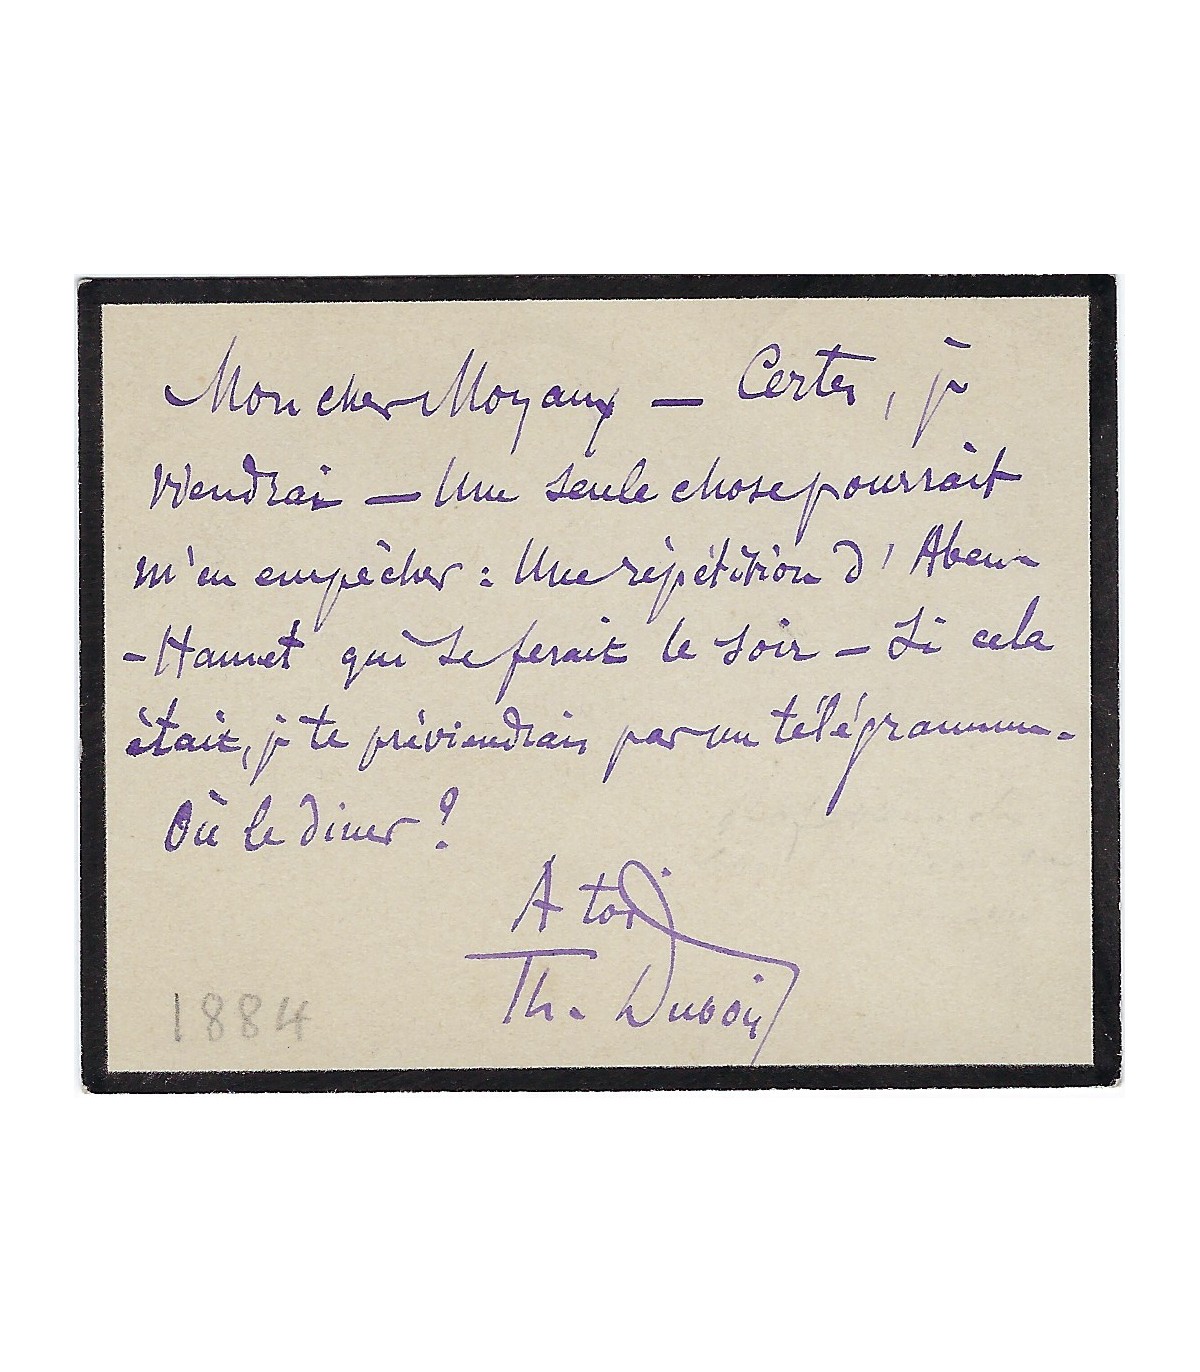 Mon cher Moyaux — Certes, je
viendrai — Une seule chose pourrait
m'en empêcher : Une répétition d'Aben-
-Hamet qui se ferait le soir — Si cela
était, je te préviendrais par un télégramme.
Où le diner ?
A toi
Th. Dubois
1884